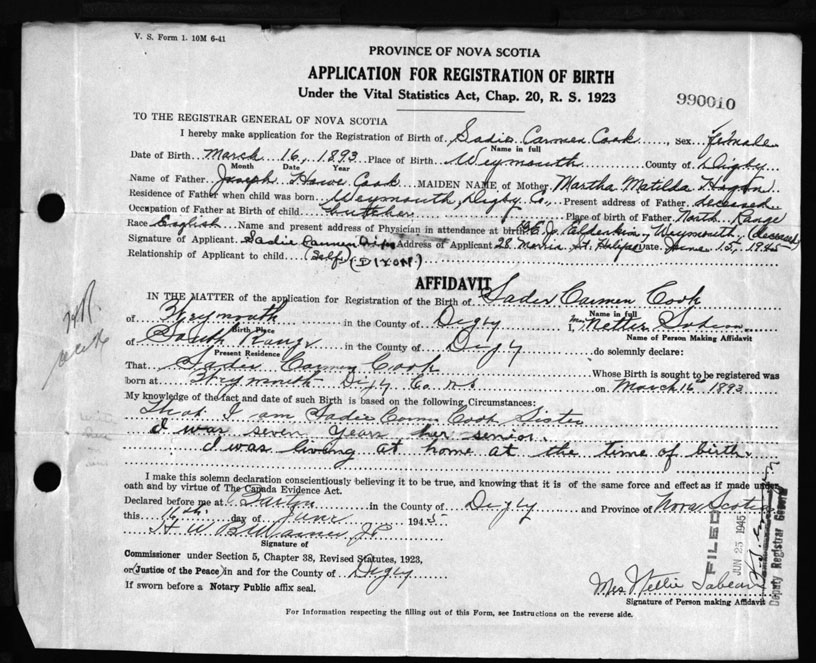 V. S. Form 1. 10M 6-41
PROVINCE OF NOVA SCOTIA
APPLICATION FOR REGISTRATION OF BIRTH
Under the Vital Statistics Act, Chap. 20, R. S. 1923
990010
TO THE REGISTRAR GENERAL OF NOVA SCOTIA
I hereby make application for the Registration of Birth of Sadie Carmen Cook, sex female
Name in full
Date of Birth March 16, 1893 Place of Birth Weymouth County of Digby
Month Date Year
Name of Father Joseph Howe Cook MAIDEN NAME of Mother Martha Matilda
Residence of Father when child was born Weymouth, Digby Co., Present address of Father deceased
Occupation of Father at Birth of child Butcher Place of birth of Father North Range
Race English Name and present address of Physician in attendance at birth Weymouth (deceased)
Signature of Applicant Sadie Carmen Dixon Address of Applicant 28 Morris St. Halifax Date June 15, 1945
Relationship of Applicant to child (Self) (DIXON)
AFFIDAVIT
IN THE MATTER of the application for Registration of the Birth of Sadie Carmen Cook
Name in full
of Weymouth in the County of Digby I, Mrs Nettie Sabean
Birth Place
Name of Person Making Affidavit
of South Range in the County of Digby do solemnly declare:
Present Residence
That Sadie Carmen Cook Whose Birth is sought to be registered was
born at Weymouth Digby Co. N.S. on March 16th 1893
My knowledge of the fact and date of such Birth is based on the following Circumstances:
That I am Sadie Carmen Cook Sister
I was seven years her senior.
I was living at home at the time of birth.
I make this solemn declaration conscientiously believing it to be true, and knowing that it is of the same force and effect as if made under
oath and by virtue of The Canada Evidence Act.
Declared before me at in the County of Digby and Province of Nova Scotia
this 16th day of June 1945
H W B Warner J.P.
Signature of
Commissioner under Section 5, Chapter 38, Revised Statutes, 1923,
or (Justice of the Peace) in and for the County of Digby
If sworn before a Notary Public affix seal.
FILED
JUN 25 1945
Deputy Registrar General
Mrs Nettie Sabean
Signature of Person making Affidavit
For Information respecting the filling out of this Form, see Instructions on the reverse side.